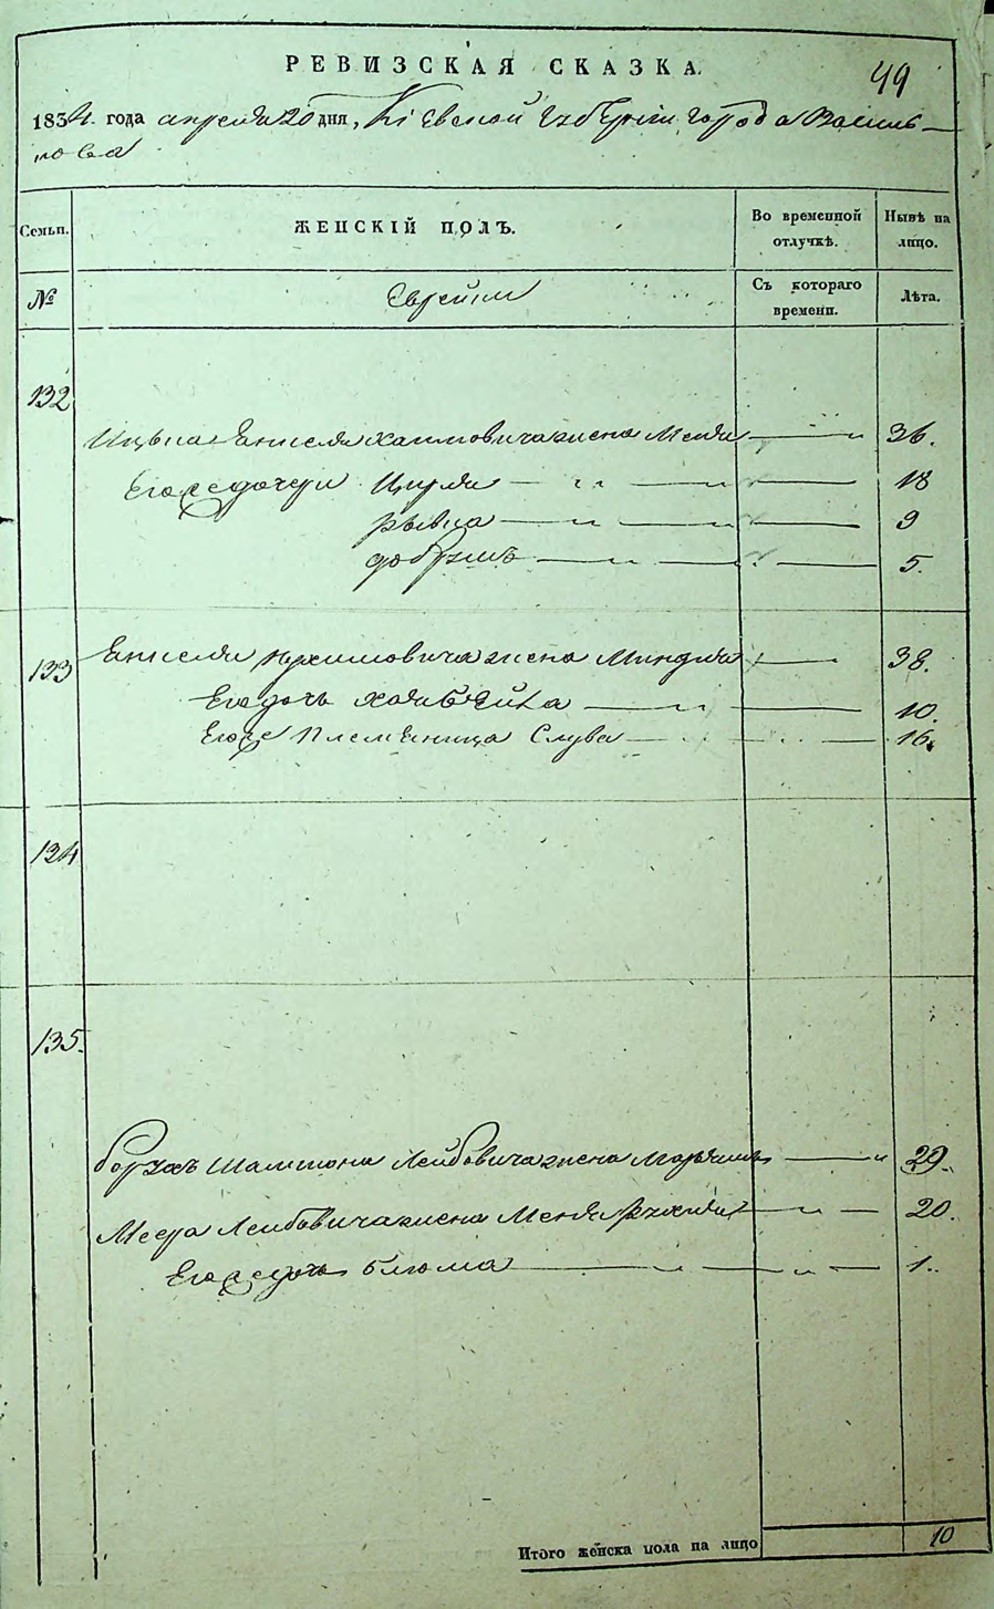 РЕВИЗСКАЯ СКАЗКА.
49
1834 года апреля 20 дня, Кіевской Губерніи города Василь-
кова
Семьи. ЖЕНСКІЙ ПОЛЪ. Во временной отлучкѣ. Нынѣ на лицо.
№ Еврейки Съ котораго времени. Лѣта.
132
Ицька Янкеля Хаимовича жена Меня 36.
Его же дочери Цирля 18
Рывка 9
Добрышъ 5.
133 Янкеля жена Миндля 38.
Его дочь Хая Бейла 10.
Его же Племѣница Слува 16.
134
135.
Шлиома Лейбовича жена Марьяшъ 29.
Меера Лейбовича жена Меня Рухля 20.
Его же дочь Блюма 1.
Итого женска пола на лицо 10